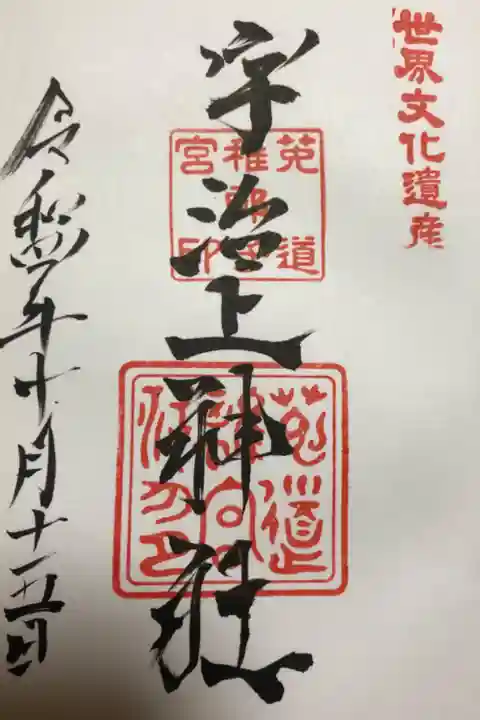 世界文化遺産
宇治上神社
菟道
稚郎子
宮印
令和年十月十五日